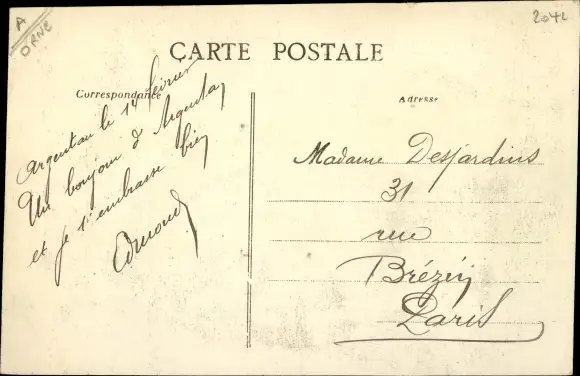 A
ORNE
2042
CARTE POSTALE
Correspondance
Adresse
Argentan le 14 février
Un bonjour d'Argentan
et je t'embrasse bien
Edmond
Madame Desjardins
31
rue
Brézin
Paris